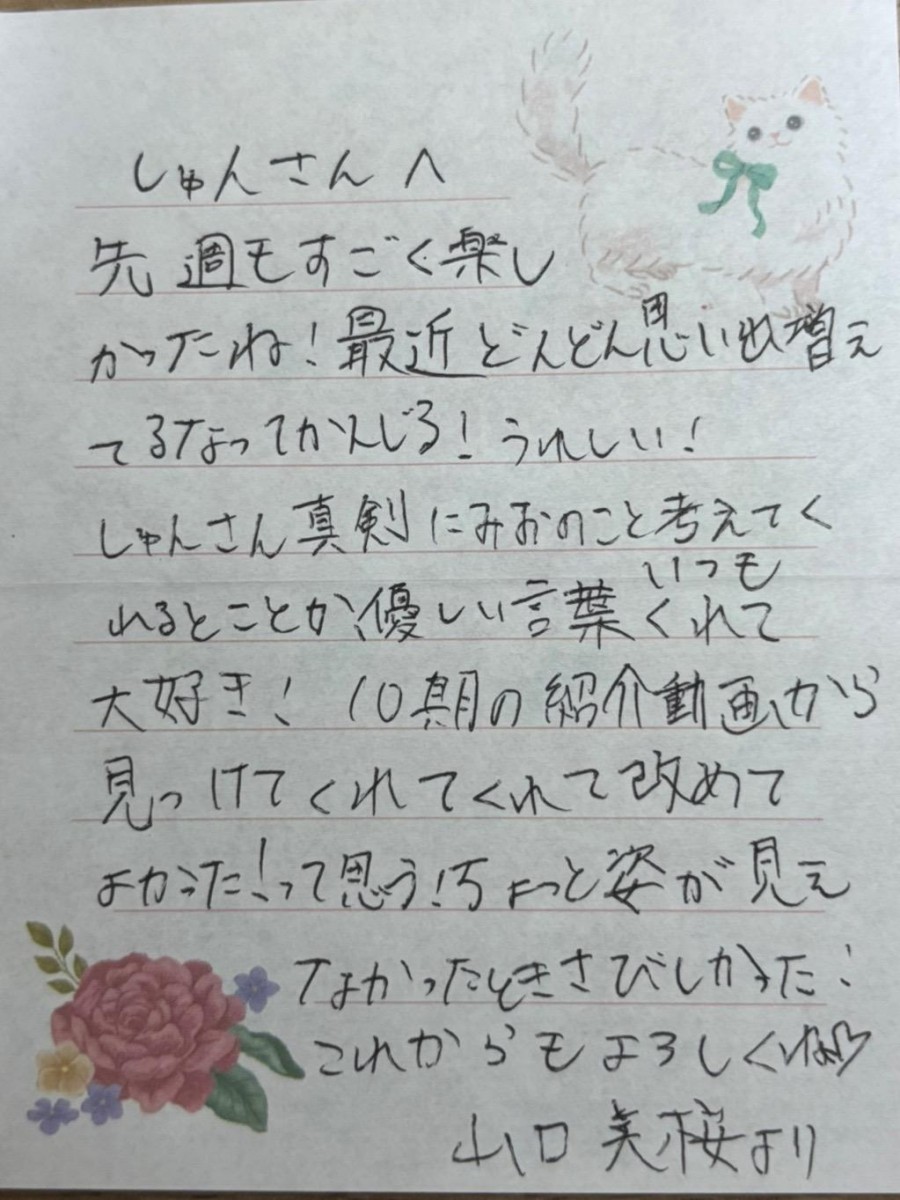 しゅんさんへ
先週もすごく楽し
かったね！最近どんどん思い出増え
てるなってかんじる！うれしい！
しゅんさん真剣にみおのこと考えてく
れるとことか、優しい言葉いつもくれて
大好き！10期の紹介動画から
見つけてくれてくれて改めて
よかった！って思う！ちょっと姿が見え
なかったときさびしかった！
これからもよろしくね♡
山口美桜より